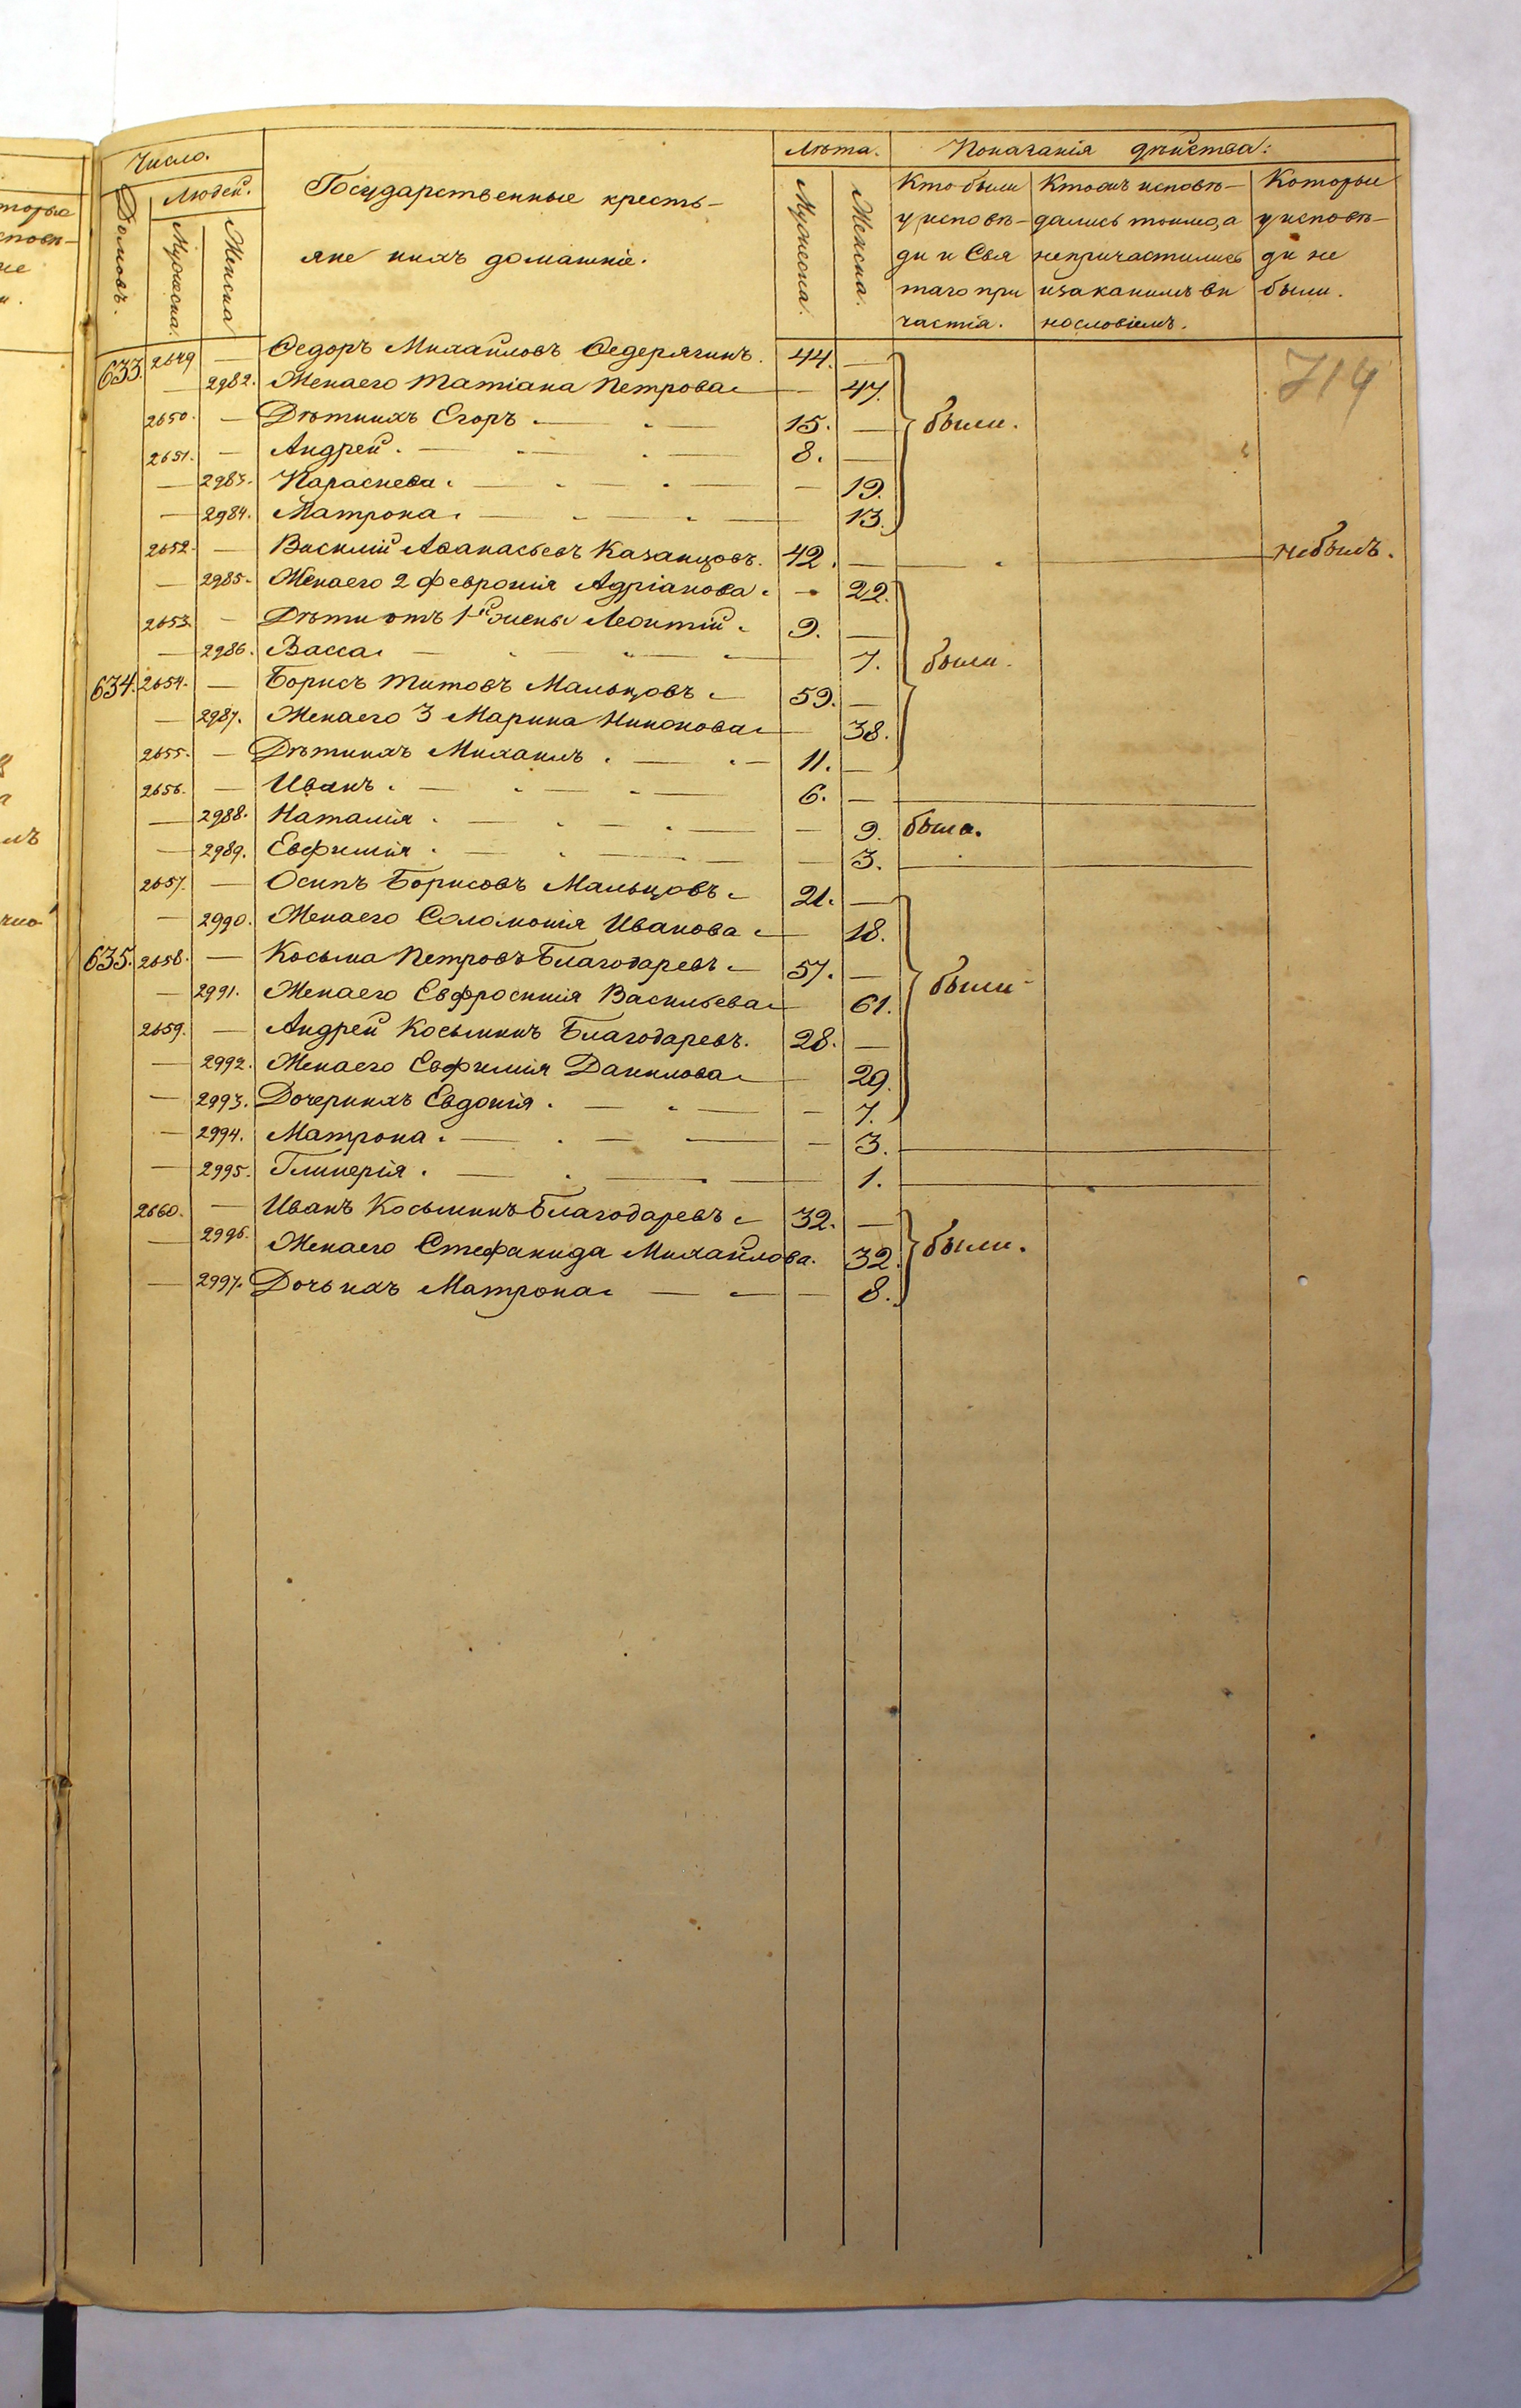 Число.
Домовъ.
Людей.
Мужеска.
Женска
Государственные кресть-
яне ихъ домашніе.
Лѣта.
Мужеска.
Женска.
Показанія дѣйства:
Кто были
у исповѣ-
ди и Свя
таго при
частія.
Кто онъ исповѣ-
дались токмо, а
непричастились
и за какимъ ви
нословіемъ.
Которыи
у исповѣ-
ди не
были.
714
633. 2649 — Ѳедоръ Михайловъ Ѳедерягинъ. 44. —
— 2982. Жена его Татіана Петрова — 47.
2650. — Дѣти ихъ Егоръ. 15. — были.
2651. — Андрей. 8. —
— 2983. Параскева. — 19.
— 2984. Матрона. — 13.
2652. — Василій Аѳанасьевъ Казанцовъ. 42. — небылъ.
— 2985. Жена его 2 Февронія Адріанова. — 22.
2653. — Дѣти отъ 1й жены Леонтій. 9. —
— 2986. Васса. — 7. были.
634. 2654. — Борисъ Титовъ Мальцовъ 59. —
— 2987. Жена его 3 Марина Никонова — 38.
2655. — Дѣти ихъ Михаилъ. 11. —
2656. — Иванъ. 6. —
— 2988. Наталія. — 9. была.
— 2989. Евфимія. — 3.
2657. — Осипъ Борисовъ Мальцовъ 21. —
— 2990. Жена его Соломонія Иванова — 18.
635. 2658. — Косьма Петровъ Благодаревъ 57. —
— 2991. Жена его Евфросинія Васильева — 61. были
2659. — Андрей Косьминъ Благодаревъ. 28. —
— 2992. Жена его Евфимія Данилова — 29.
— 2993. Дочери ихъ Евдокія. — 7.
— 2994. Матрона. — 3.
— 2995. Гликерія. — 1.
2660. — Иванъ Косьминъ Благодаревъ 32. —
— 2996. Жена его Стефанида Михайлова. 32. были.
— 2997. Дочь ихъ Матрона — 8.